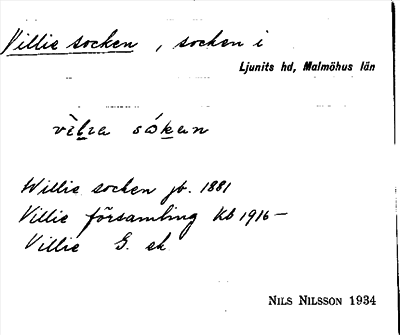 Villie socken , socken i
Ljunits hd, Malmöhus län
socken
Willie socken jb. 1881
Villie församling Kb 1916 –
Villie G. ek
NILS NILSSON 1934